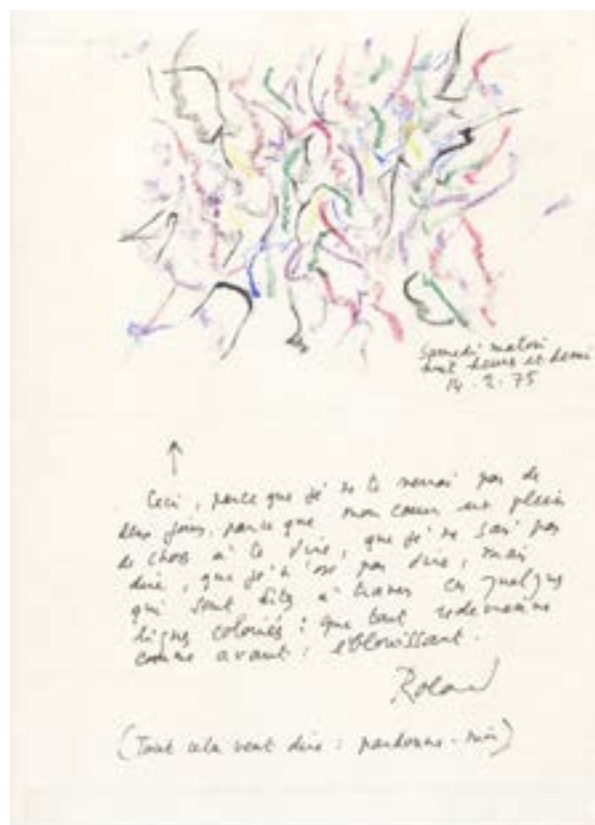 Samedi matin
huit heures et demi
14.2.75
Ceci, parce que je ne te verrai pas de
deux jours, parce que mon cœur est plein
de choses à te dire, que je ne sais pas
dire, que je n'ose pas dire, mais
qui sont dites à travers ces quelques
lignes coloriées : que tout redevienne
comme avant : éblouissant.
Roland
(Tout cela veut dire : pardonne-moi)